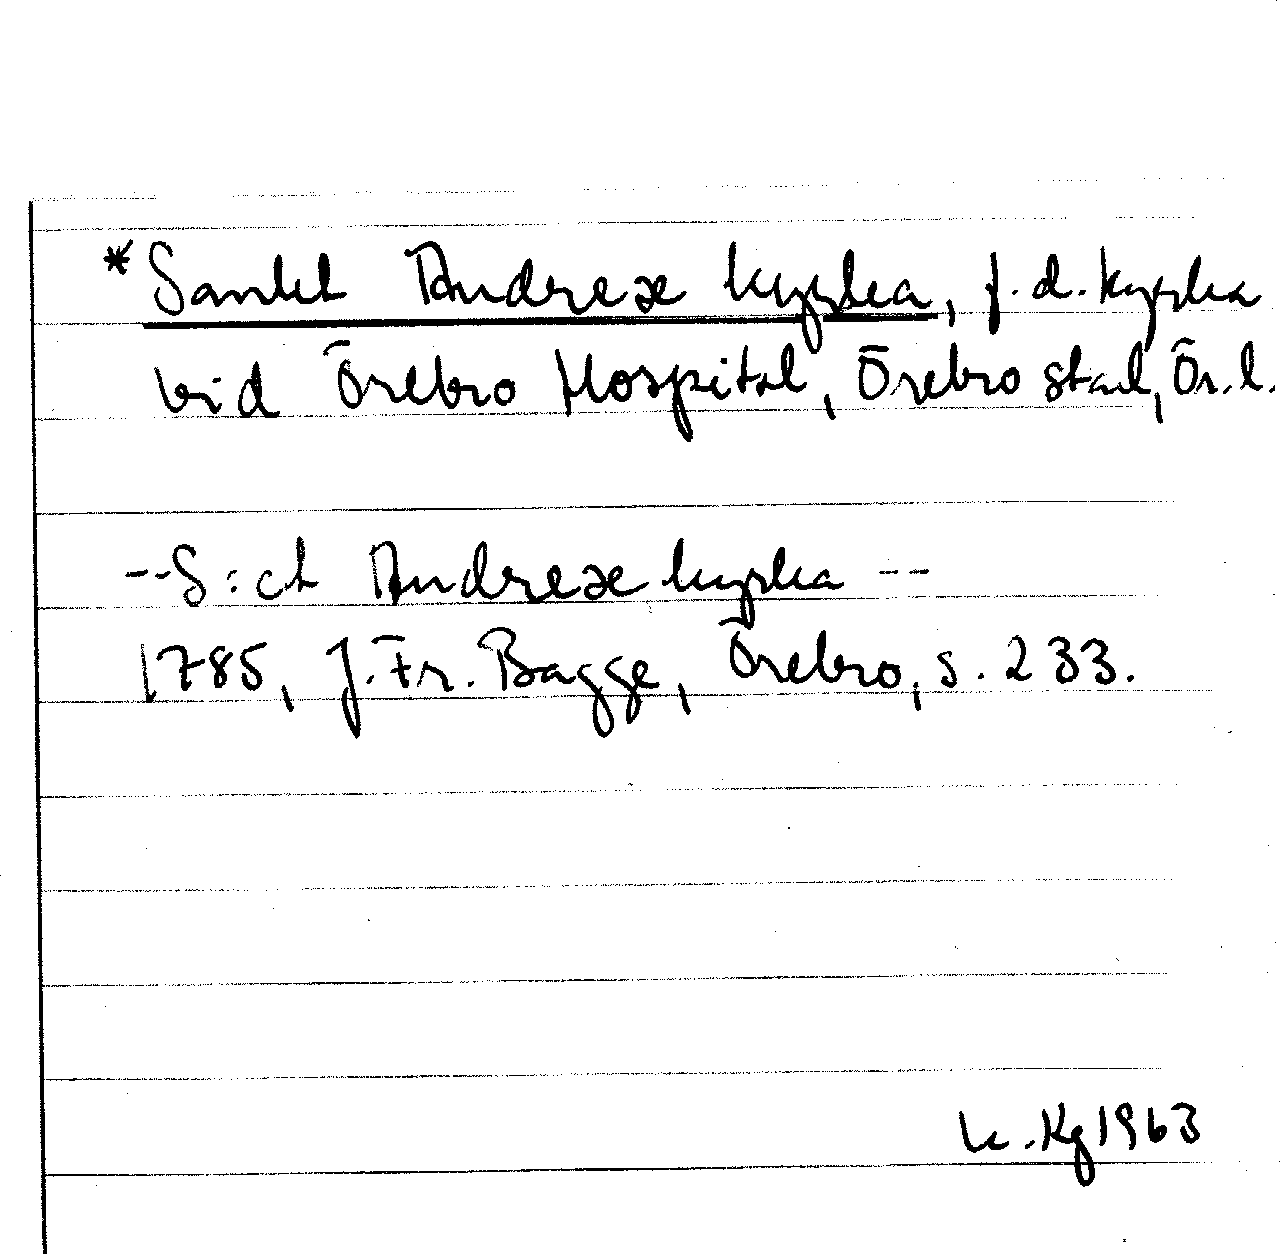 * Sankt Andreæ kyrka, f.d. kyrka
vid Örebro Hospital, Örebro stad, Ör. l.
-- S:ct Andreæ kyrka --
1785, J. Fr. Bagge, Örebro, s. 233.
Kg 1963